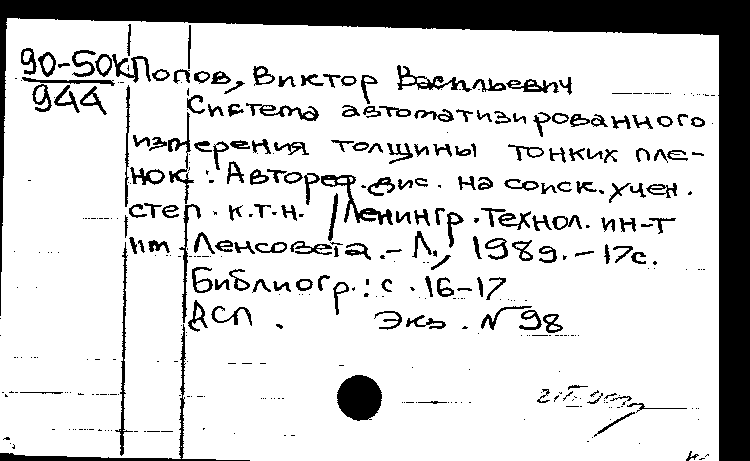 90-50к Попов, Виктор Васильевич
944
Система автоматизированного
измерения толщины тонких пле-
нок : Автореф. дис. на соиск. учен.
степ. к.т.н. / Ленингр. технол. ин-т
им. Ленсовета. - Л., 1989. - 17с.
Библиогр.: с. 16-17
ДСП. Экз. № 98